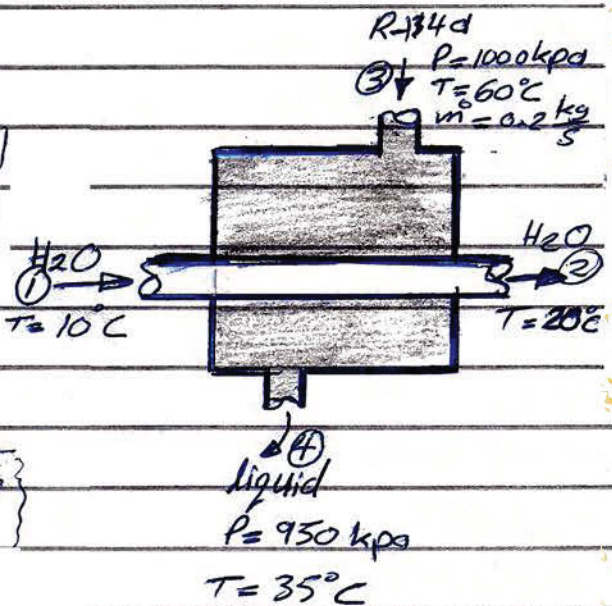 R-134a
P=1000kpa
③ T=60°C
ṁ=0.2 kg/s
H2O
① T=10°C
H2O
②
T=20°C
④
liquid
P=950 kpa
T=35°C